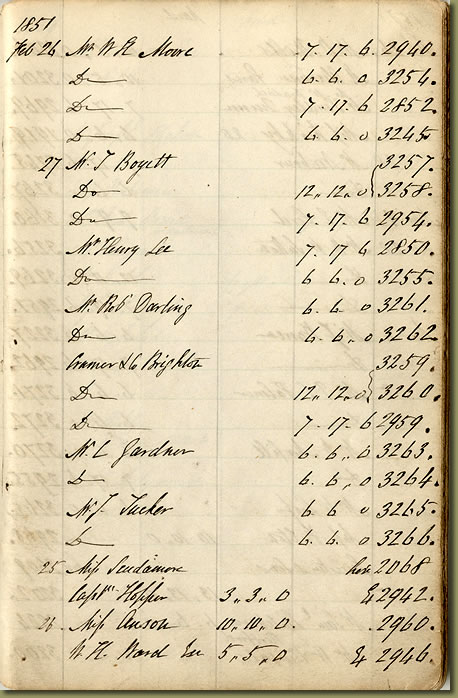 1851
Feb 26 Mr W H Moore 7. 17. 6. 2940.
Do 6. 6. 0 3254.
Do 7. 17. 6 2852.
Do 6. 6. 0 3245
27 Mr J Boyett 3257.
Do 12,, 12,, 0 3258.
Do 7. 17. 6 2954.
Mr Henry Lee 7. 17 6 2850.
Do 6 6. 0 3255.
Mr Robt Darling 6. 6. 0 3261.
Do 6. 6.. 0 3262
Cramer & Co Brighton 3259.
Do 12,, 12,, 0 3260.
Do 7. 17. 6 2959.
Mr C Gardner 6. 6,, 0 3263.
Do 6. 6,, 0 3264.
Mr J. Tucker 6 6 0 3265.
Do 6. 6. 0 3266.
25 Miss Scudamore hire 2068
Captn Hopper 3,, 3,, 0 2942.
26. Miss Anson 10,, 10,, 0 2960.
W. H. Ward Esr 5,, 5,, 0 2946.